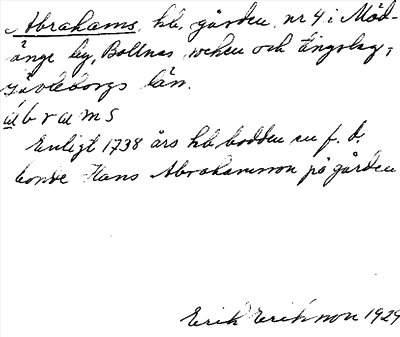 Abrahams, hb, gården nr 4 i Möd-
änge by, Bollnäs socken och tingslag,
Gävleborgs län.
ábrams
Enligt 1738 års hb bodde en f. d.
bonde Hans Abrahamsson på gården
Erik Eriksson 1929